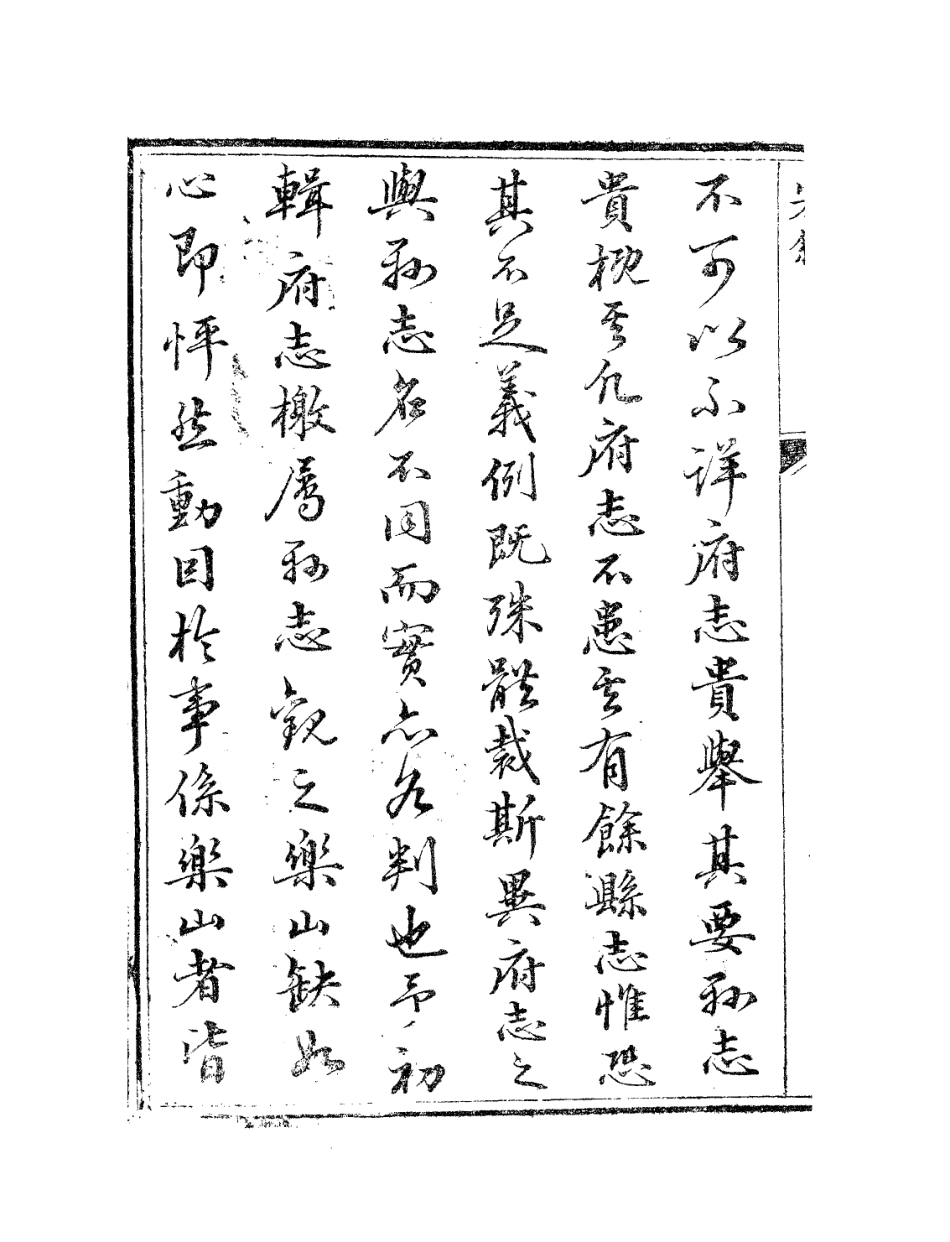 不可以不詳府志貴舉其要縣志
貴概其凡府志不患其有餘縣志惟恐
其不足義例既殊體裁斯異府志之
與縣志名不同而實亦各判也予初
輯府志檄屬縣志觀之樂山缺如
心即怦然動因於事係樂山者皆